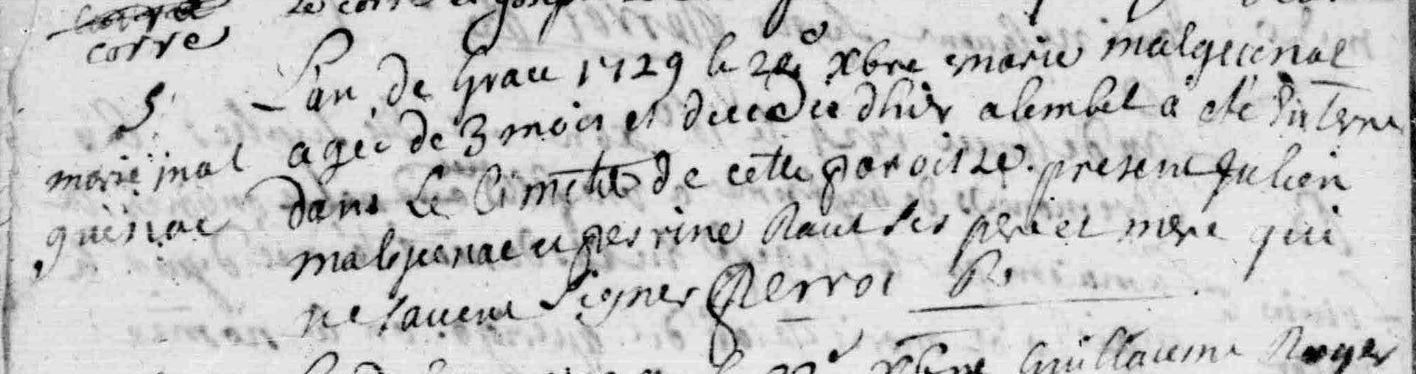 corre
L'an de grace 1729 le 28e Xbre marie malguenac
5
agée de 3 mois et decedee d'hier a lembel a eté Interre
marie mal
guenac
dans Le Cimetre de cette paroisse. present Julien
malguenac et perrine Raut ses pere et mere qui
ne savent signer Perrot
Xbre Guillaume Royer